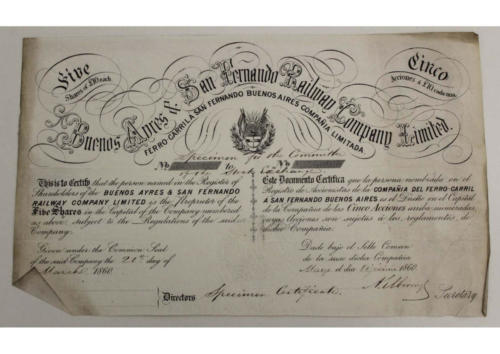 Five
Shares of £10 each
Cinco
Acciones a £10 cada una
Buenos Ayres & San Fernando Railway Company Limited.
FERRO-CARRIL A SAN FERNANDO BUENOS AIRES COMPANIA LIMITADA.
Specimen for the Committee
of the Stock Exchange
No
No
This is to Certify that the person named in the Register of
Shareholders of the BUENOS AYRES & SAN FERNANDO
RAILWAY COMPANY LIMITED is the Proprietor of the
Five Shares in the Capital of the Company numbered
as above subject to the Regulations of the said
Company.
Given under the Common Seal
of the said Company the day of
March 1860
Este Documento Certifica que la persona nombrada en el
Registro de Accionistas de la COMPAÑIA DEL FERRO-CARRIL
A SAN FERNANDO BUENOS AIRES es el Dueño en el Capital
de la Compañia de las Cinco Acciones arriba numeradas
cuyas Acciones son sujetas á los reglamentos, de
dicha Compañia.
Dado bajo el Sello Comun
de la susodicha Compañia
Marzo el dia 1860
Directors
Specimen Certificate.
Secretary